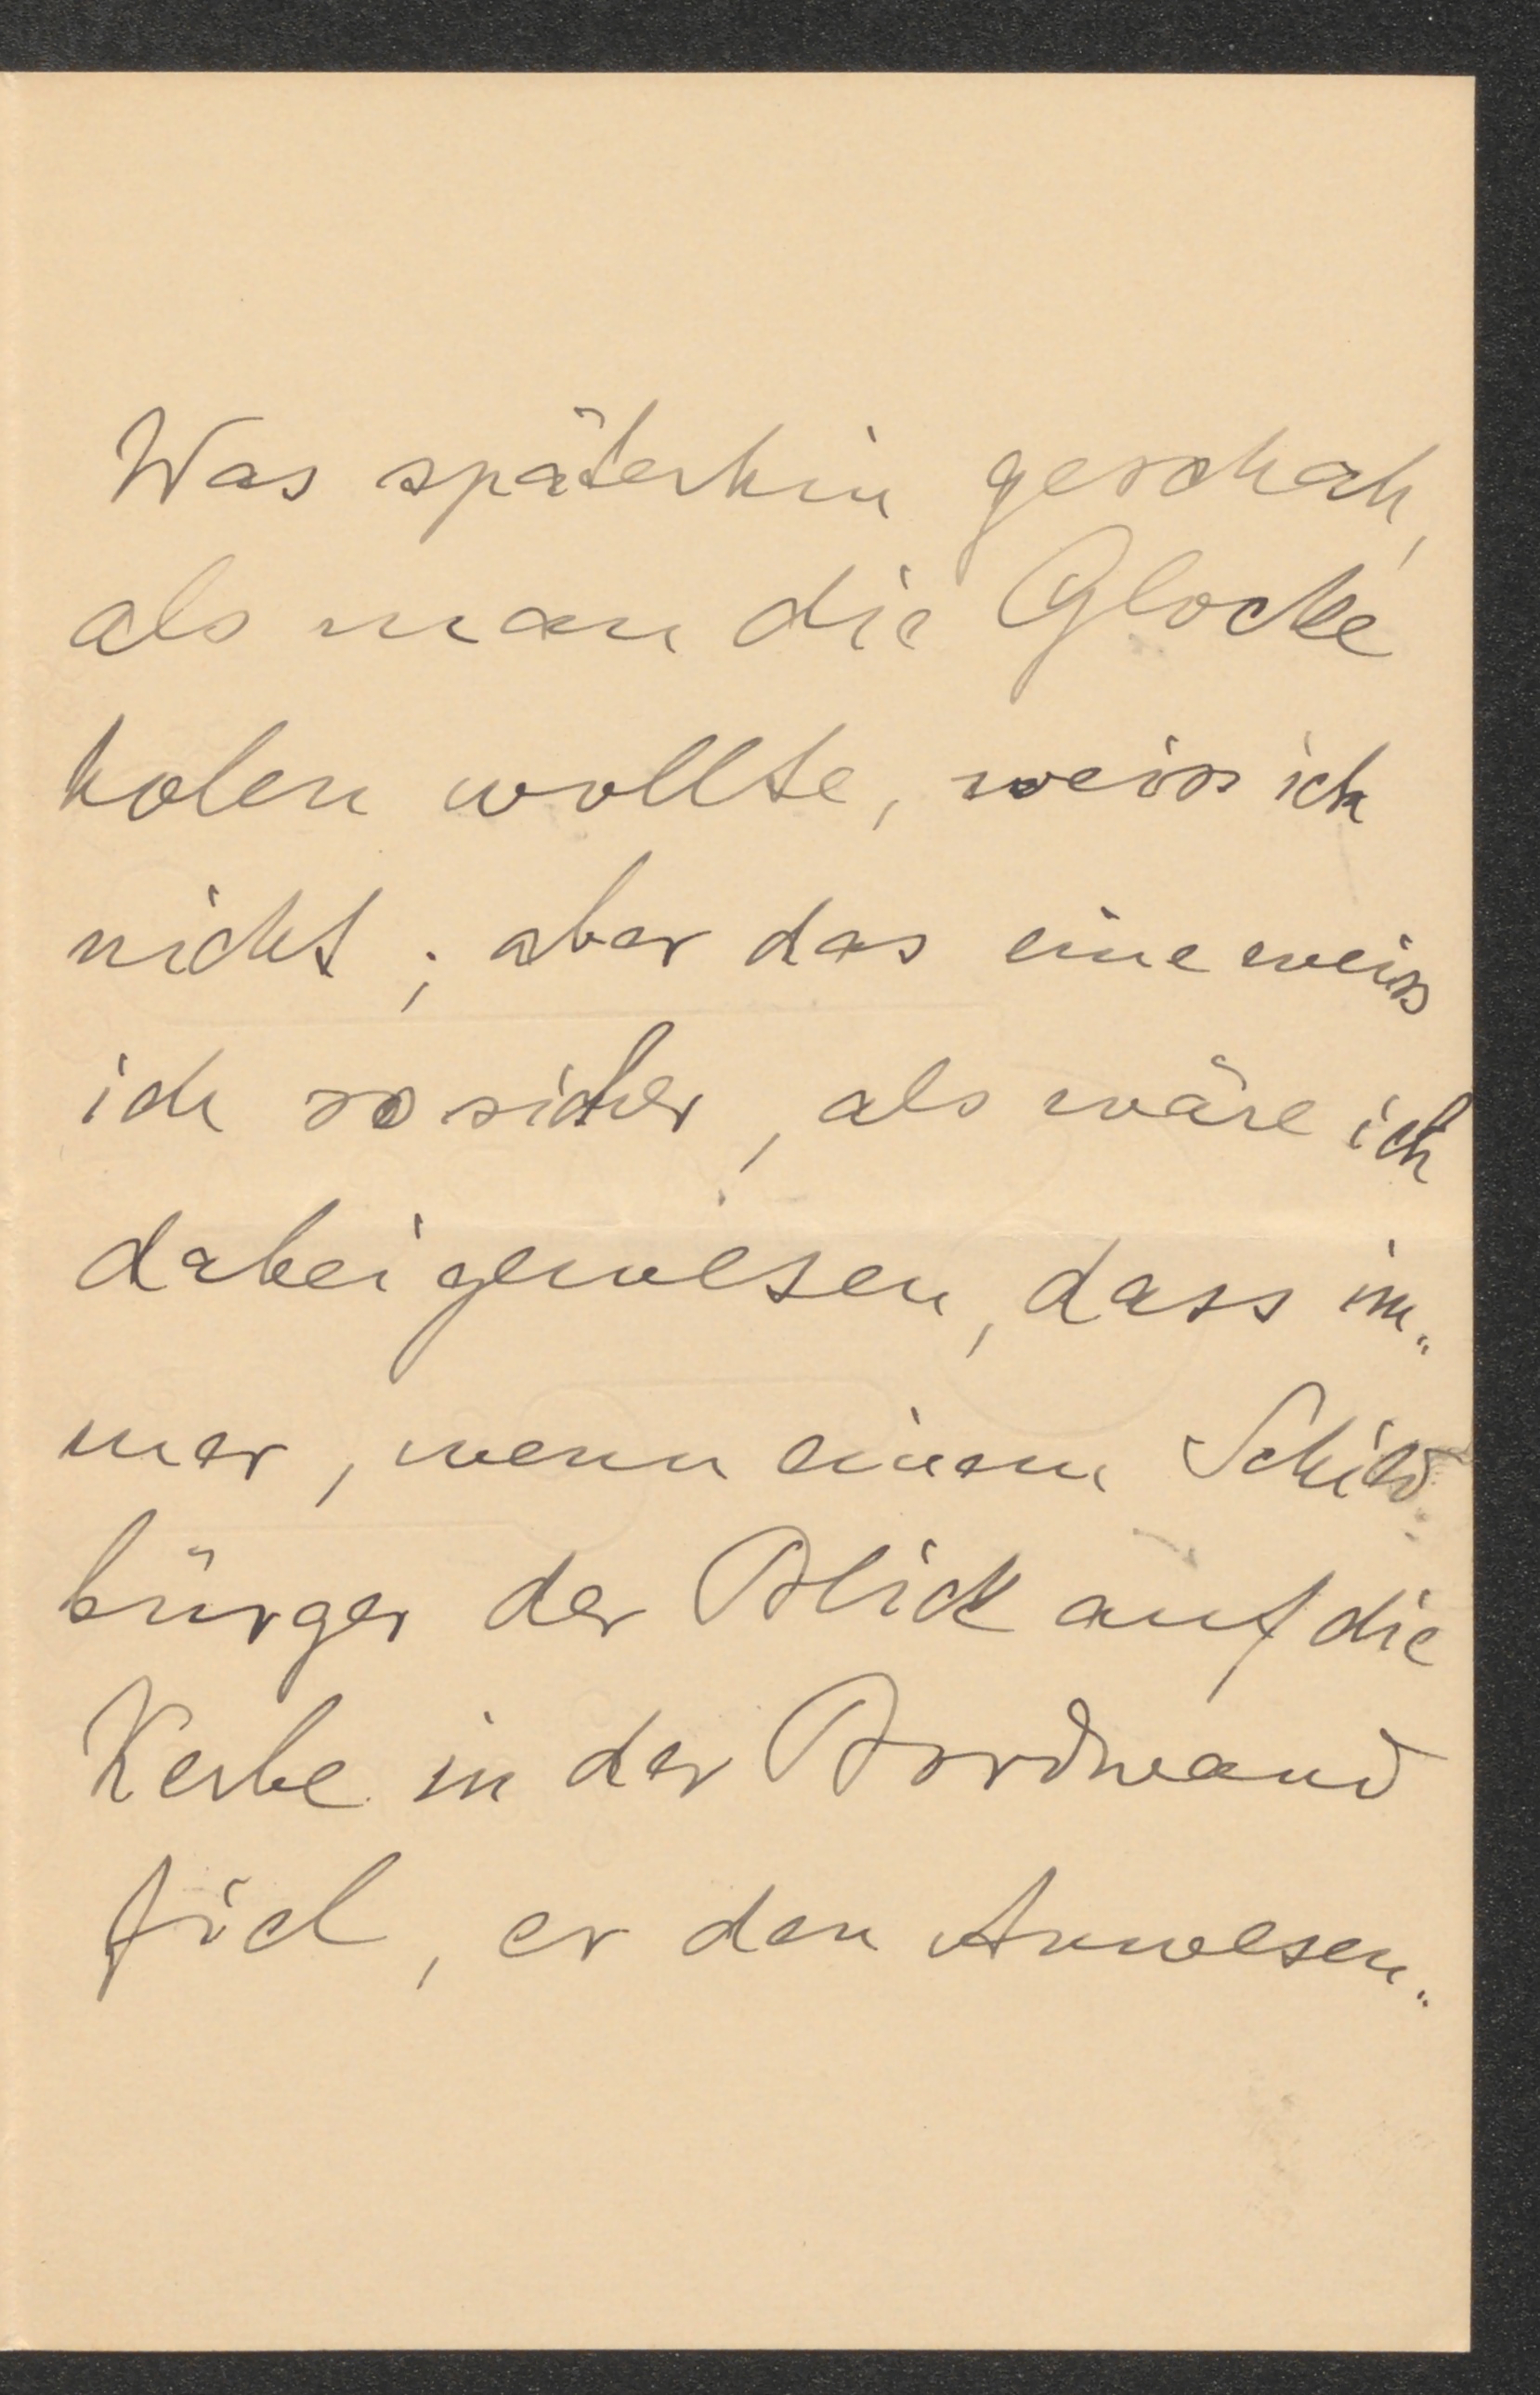 Was späterhin geschah,
als man die Glocke
holen wollte, weiss ich
nicht; aber das eine weiss
ich so sicher, als wäre ich
dabei gewesen, dass im„
mer, wenn einem Schild„
bürger der Blick auf die
Kerbe in der Bordwand
fiel, er den Anwesen„